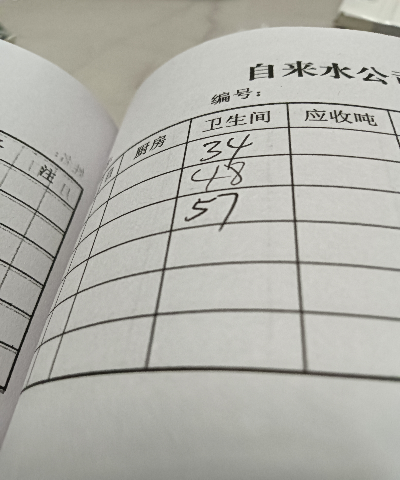 自来水公司
编号：
厨房 卫生间 应收吨
34
48
57
注